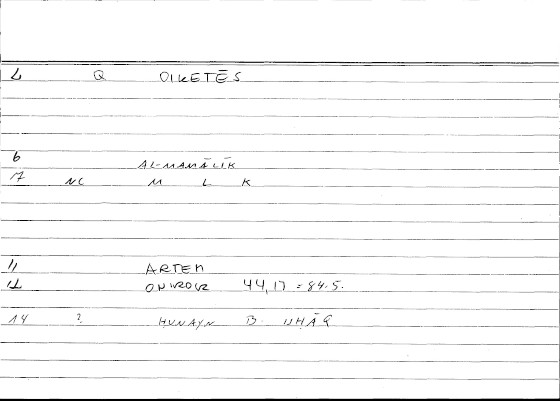 2 Q OIKETĒS
6 AL-MAMĀLĪK
7 NC M L K
11 ARTEM
12 ONIROCR 44,17 = 84.5.
14 ? HUNAYN B. ISHĀQ